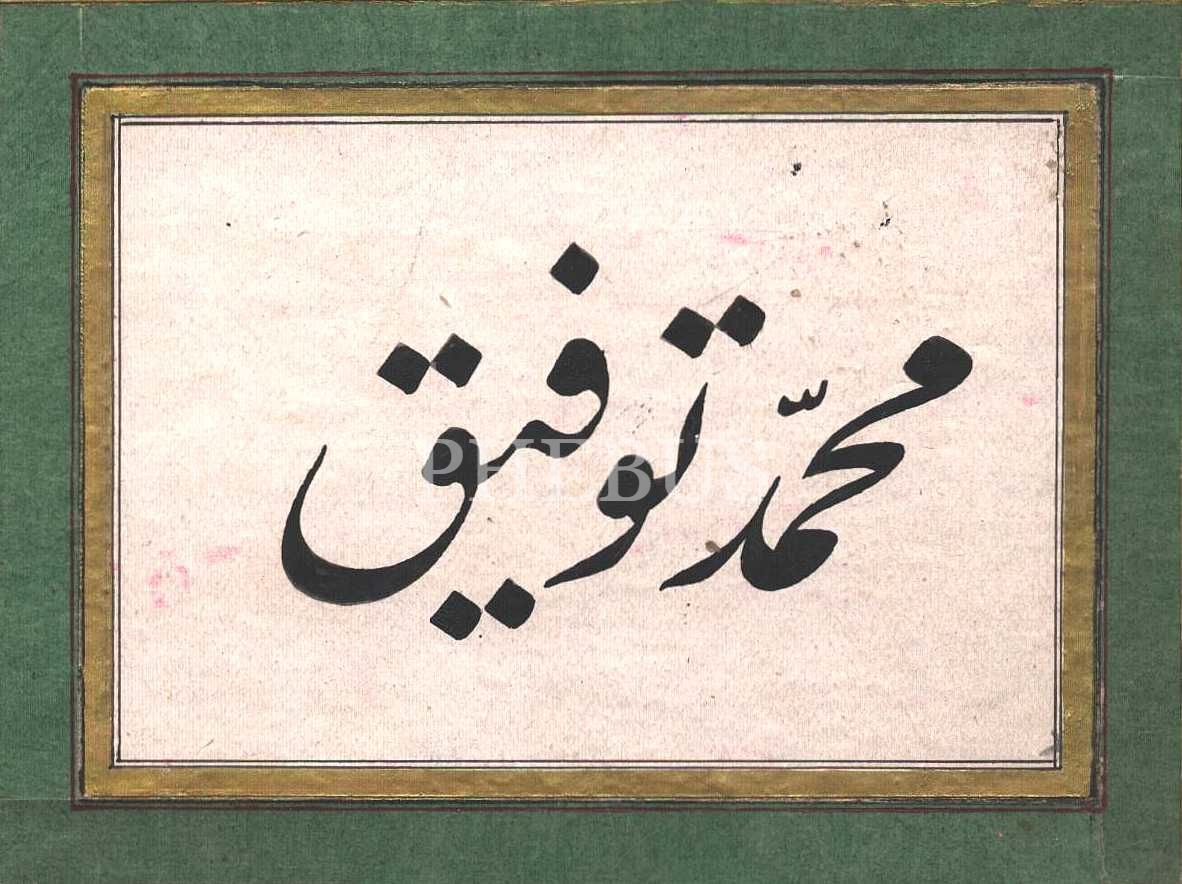 محمّد توفيق
PHEBUS